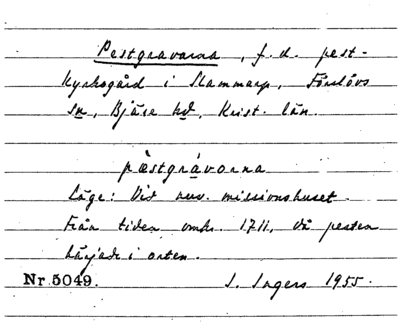 Pestgravarna, f.d. pest-
kyrkogård i Slammarp, Förslövs
sn, Bjäre hd, Krist. län.
pæstgràvorna
Läge: Vid nuv. missionshuset.
Från tiden omkr. 1711, då pesten
härjade i orten.
Nr 5049. I. Ingers 1955.